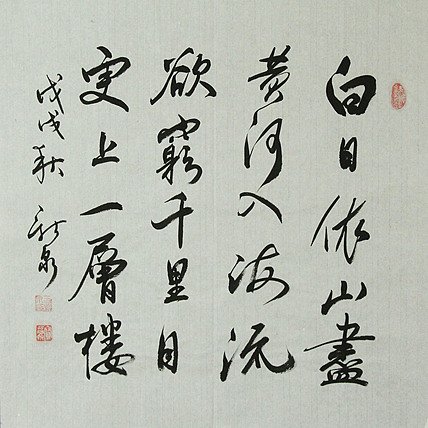 白日依山盡
黄河入海流
欲窮千里目
更上一層樓
戊戌秋